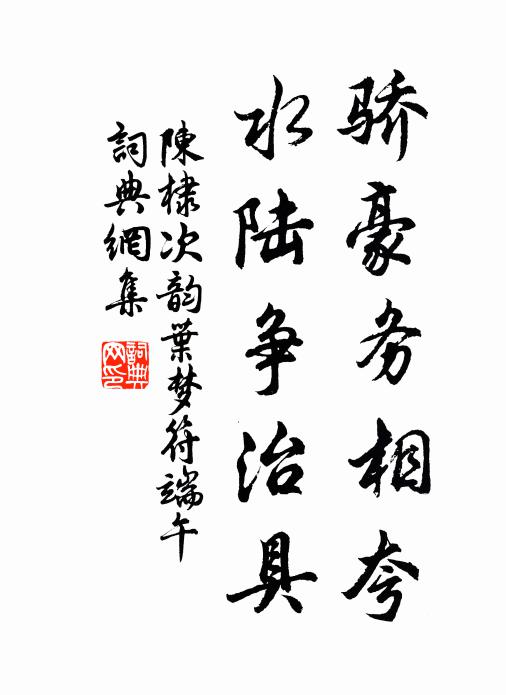 骄豪务相夸
水陆争治具
陳棣次韵葉梦符端午
詞典網集
詞典网印